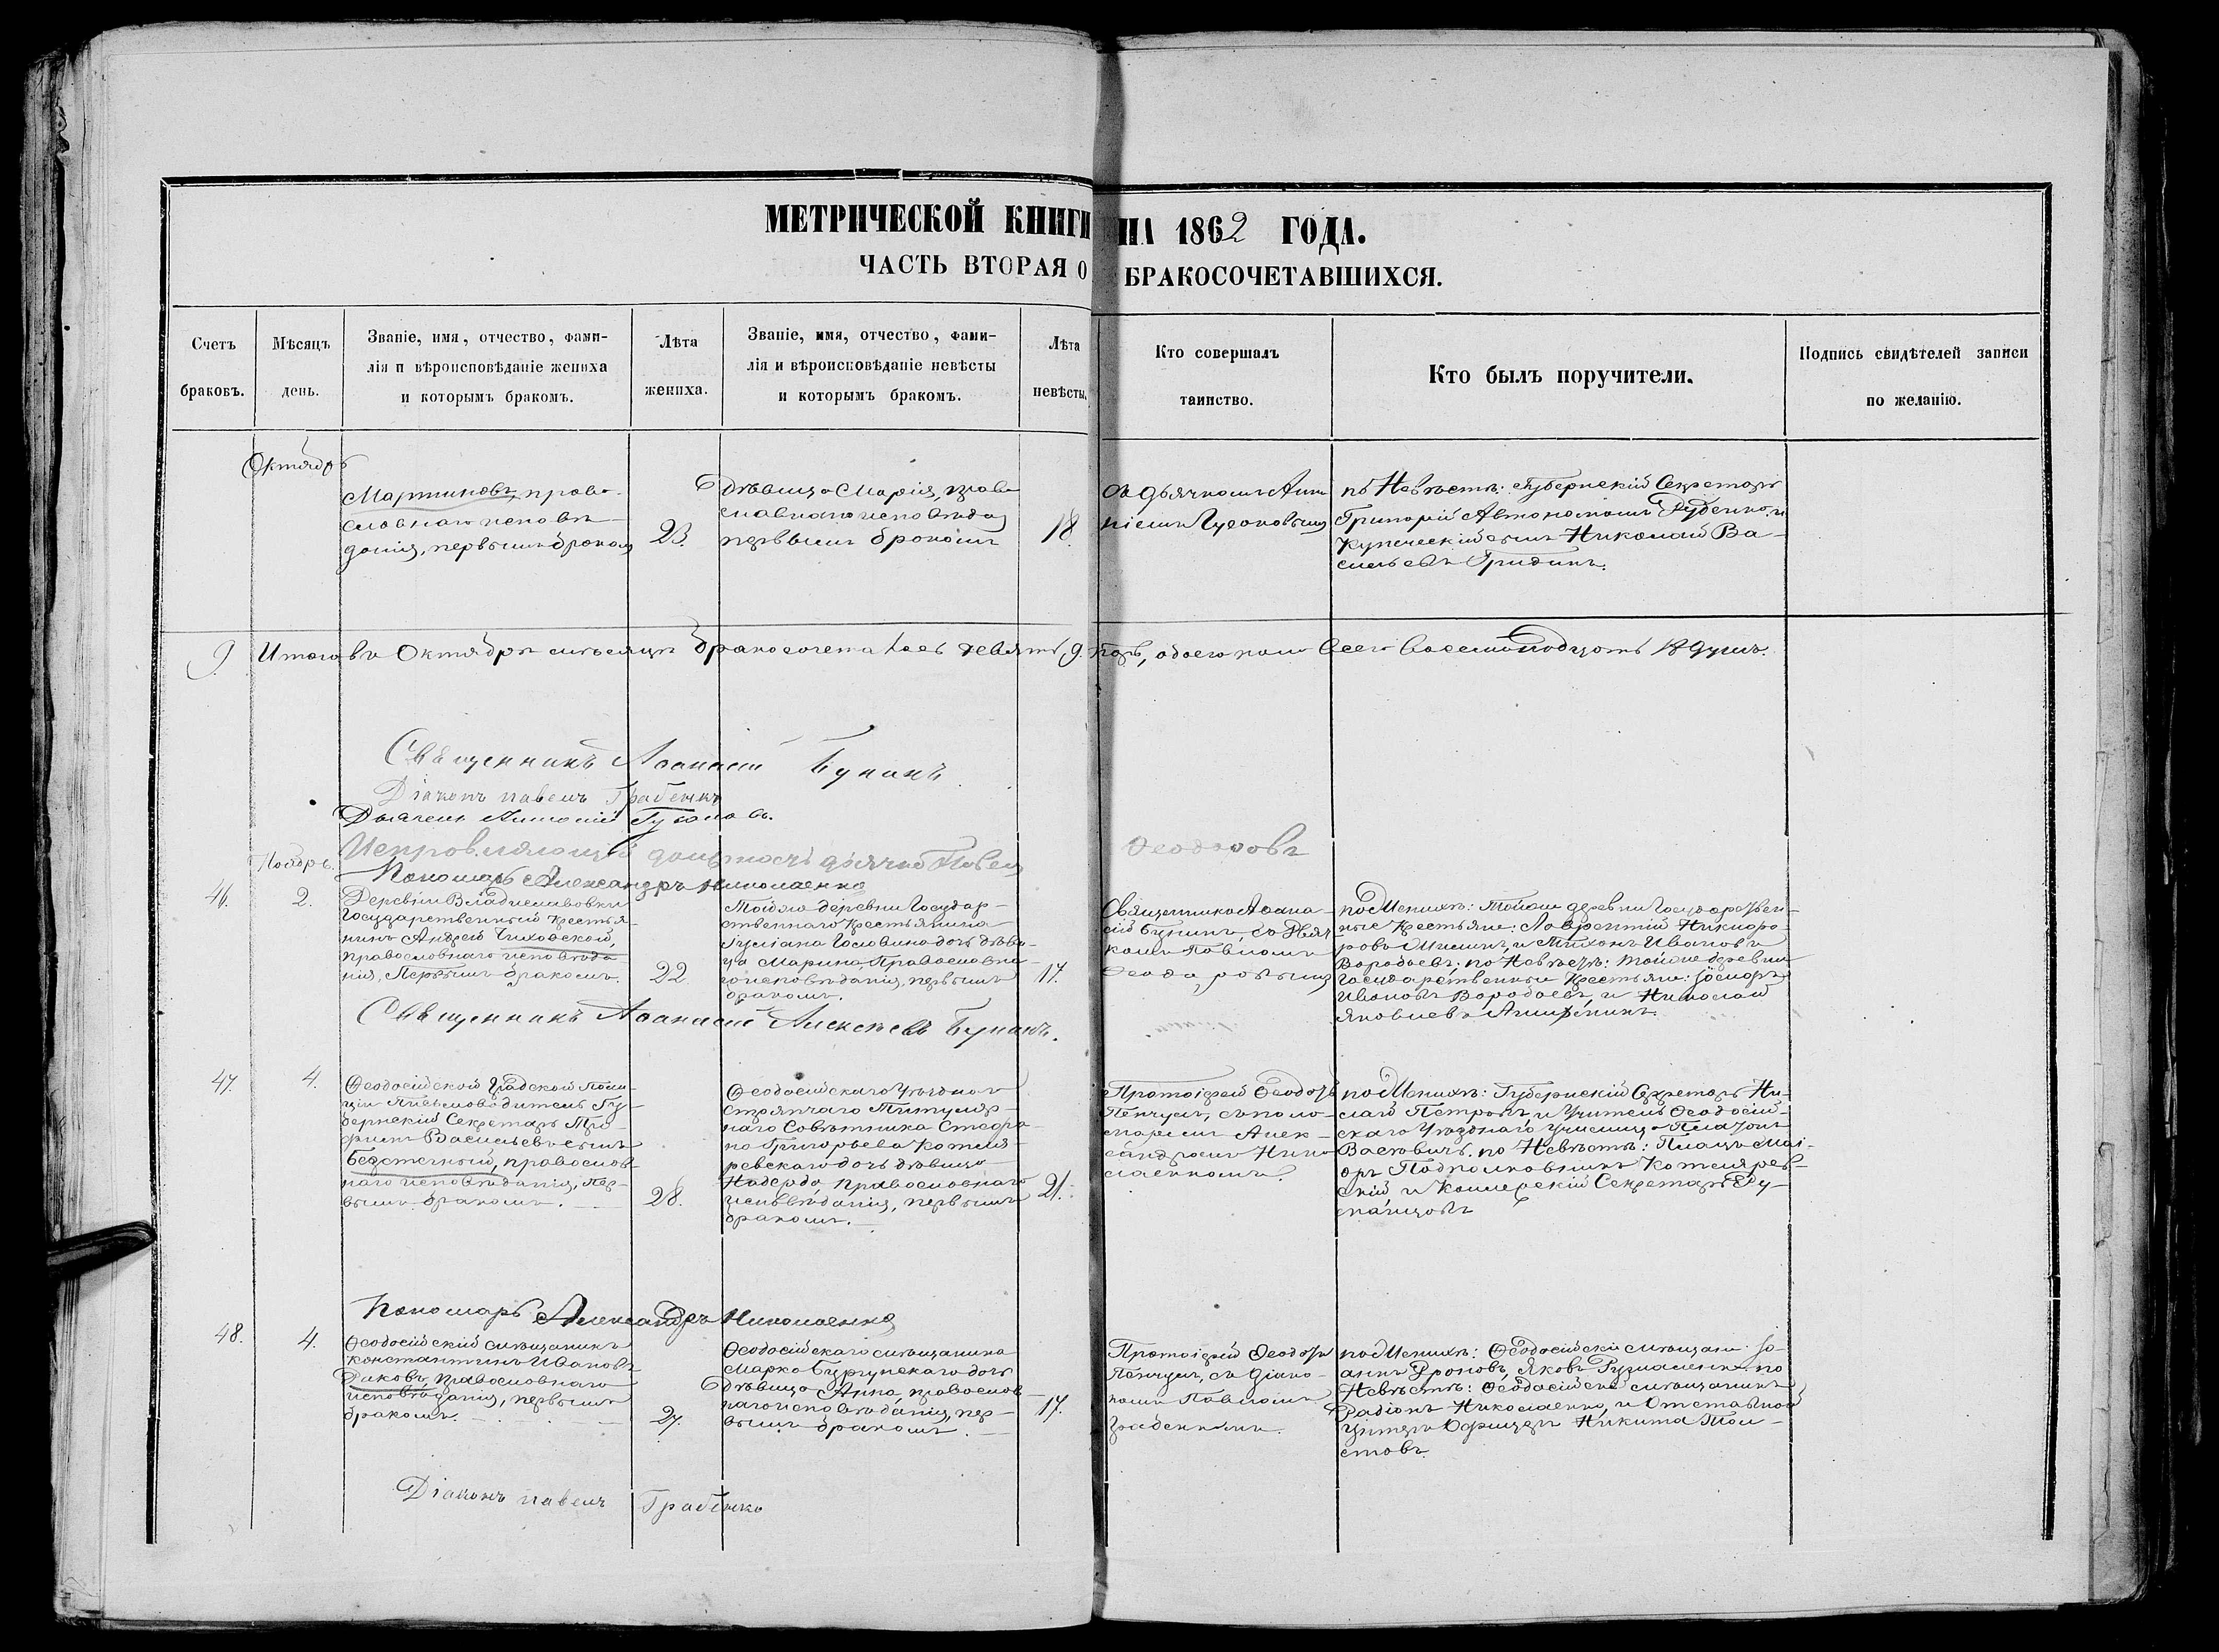 МЕТРИЧЕСКОЙ КНИГИ НА 1862 ГОДА.
ЧАСТЬ ВТОРАЯ О БРАКОСОЧЕТАВШИХСЯ.
Счетъ
браковъ.
Мѣсяцъ
день.
Званіе, имя, отчество, фами-
лія и вѣроисповѣданіе жениха
и которымъ бракомъ.
Лѣта
жениха.
Званіе, имя, отчество, фами-
лія и вѣроисповѣданіе невѣсты
и которымъ бракомъ.
Лѣта
невѣсты.
Кто совершалъ
таинство.
Кто былъ поручители.
Подпись свидѣтелей записи
по желанію.
Октябрь
Мартиновъ, право-
славнаго исповѣ-
данія, первымъ бракомъ
23.
Дѣвица Марія, право
славнаго исповѣда
первымъ бракомъ
18.
съ дьячкомъ
по Невѣстѣ: Губернскій Секретарь
Григорій Автономовъ Руденко, и
Купеческій сынъ Николай Ва-
сильевъ Гридинъ.
9. Итого въ Октябрѣ мѣсяцѣ бракосочеталось девять, 9. паръ, обоего пола всего восемнадцать 18 душъ.
Священникъ Аѳанасій Бунинъ.
Діаконъ Павелъ Грабенко
Дьячекъ Антоній Гусаковъ.
Исправляющій должность дьячка Павелъ Ѳеодоровъ
Пономарь Александръ Николаенко
Ноябрь.
46.
2.
Деревни Владиславовки
Государственный крестья
нинъ Андрей Чиховской,
православнаго исповѣда
нія, Первымъ бракомъ.
22
Тойже деревни Государ-
ственнаго Крестьянина
Гуліана Головина дочь дѣви-
ца Марина, Православна-
го исповѣданія, первымъ
бракомъ.
17.
Священникъ Аѳана-
сій Бунинъ, съ дьяч
комъ Павломъ
Ѳеодоровымъ
по Женихѣ: Тойже деревни Государствен-
ные Крестьяне: Лаврентій Никифо-
ровъ и Тихонъ Ивановъ
Воробьевъ; по Невѣстѣ: Тойже деревни
Государственные Крестьяне:
Ивановъ Воробьевъ, и Николай
Яковлевъ
Священникъ Аѳанасій Алексѣевъ Бунинъ.
47.
4.
Ѳеодосійской Градской Поли-
ціи Письмоводитель Гу-
бернскій Секретарь Три-
фонъ Васильевъ сынъ
Безстечный, православ
наго исповѣданія, пер-
вымъ бракомъ.
28.
Ѳеодосійскаго Уѣзднаго
Стряпчаго Титуляр-
наго Совѣтника Стефа-
на Григорьева Котля-
ревскаго дочь дѣвица
Надежда, православнаго
исповѣданія, первымъ
бракомъ.
21.
Протоіерей Ѳеодоръ
съ поно-
маремъ Алек-
сандромъ Нико-
лаенкомъ.
по Женихѣ: Губернскій Секретарь Ни-
лай Петровъ, и Учитель Ѳеодосій-
скаго Уѣзднаго Училища Платонъ
Васковичъ. по Невѣстѣ: Плацъ Маі-
оръ Подполковникъ Котлярев-
скій, и Коллежскій Секретарь Ру-
манцовъ
Пономарь Александръ Николаенко
48.
4.
Ѳеодосійскій мѣщанинъ
Константинъ Ивановъ
Диковъ, православнаго
исповѣданія, первымъ
бракомъ.
27.
Ѳеодосійскаго мѣщанина
Марка дочь
Дѣвица Анна, православ
наго исповѣданія, пер-
вымъ бракомъ.
17.
Протоіерей Ѳеодоръ
съ діако-
номъ Павломъ
Грабенкомъ.
по Женихѣ: Ѳеодосійскіе мѣщане: Іо-
аннъ Дроновъ, Яковъ по
Невѣстѣ: Ѳеодосійскій мѣщанинъ
Радіонъ Николаенко, и Отставной
Унтеръ Офицеръ Никита Тол-
стовъ.
Діаконъ Павелъ Грабенко